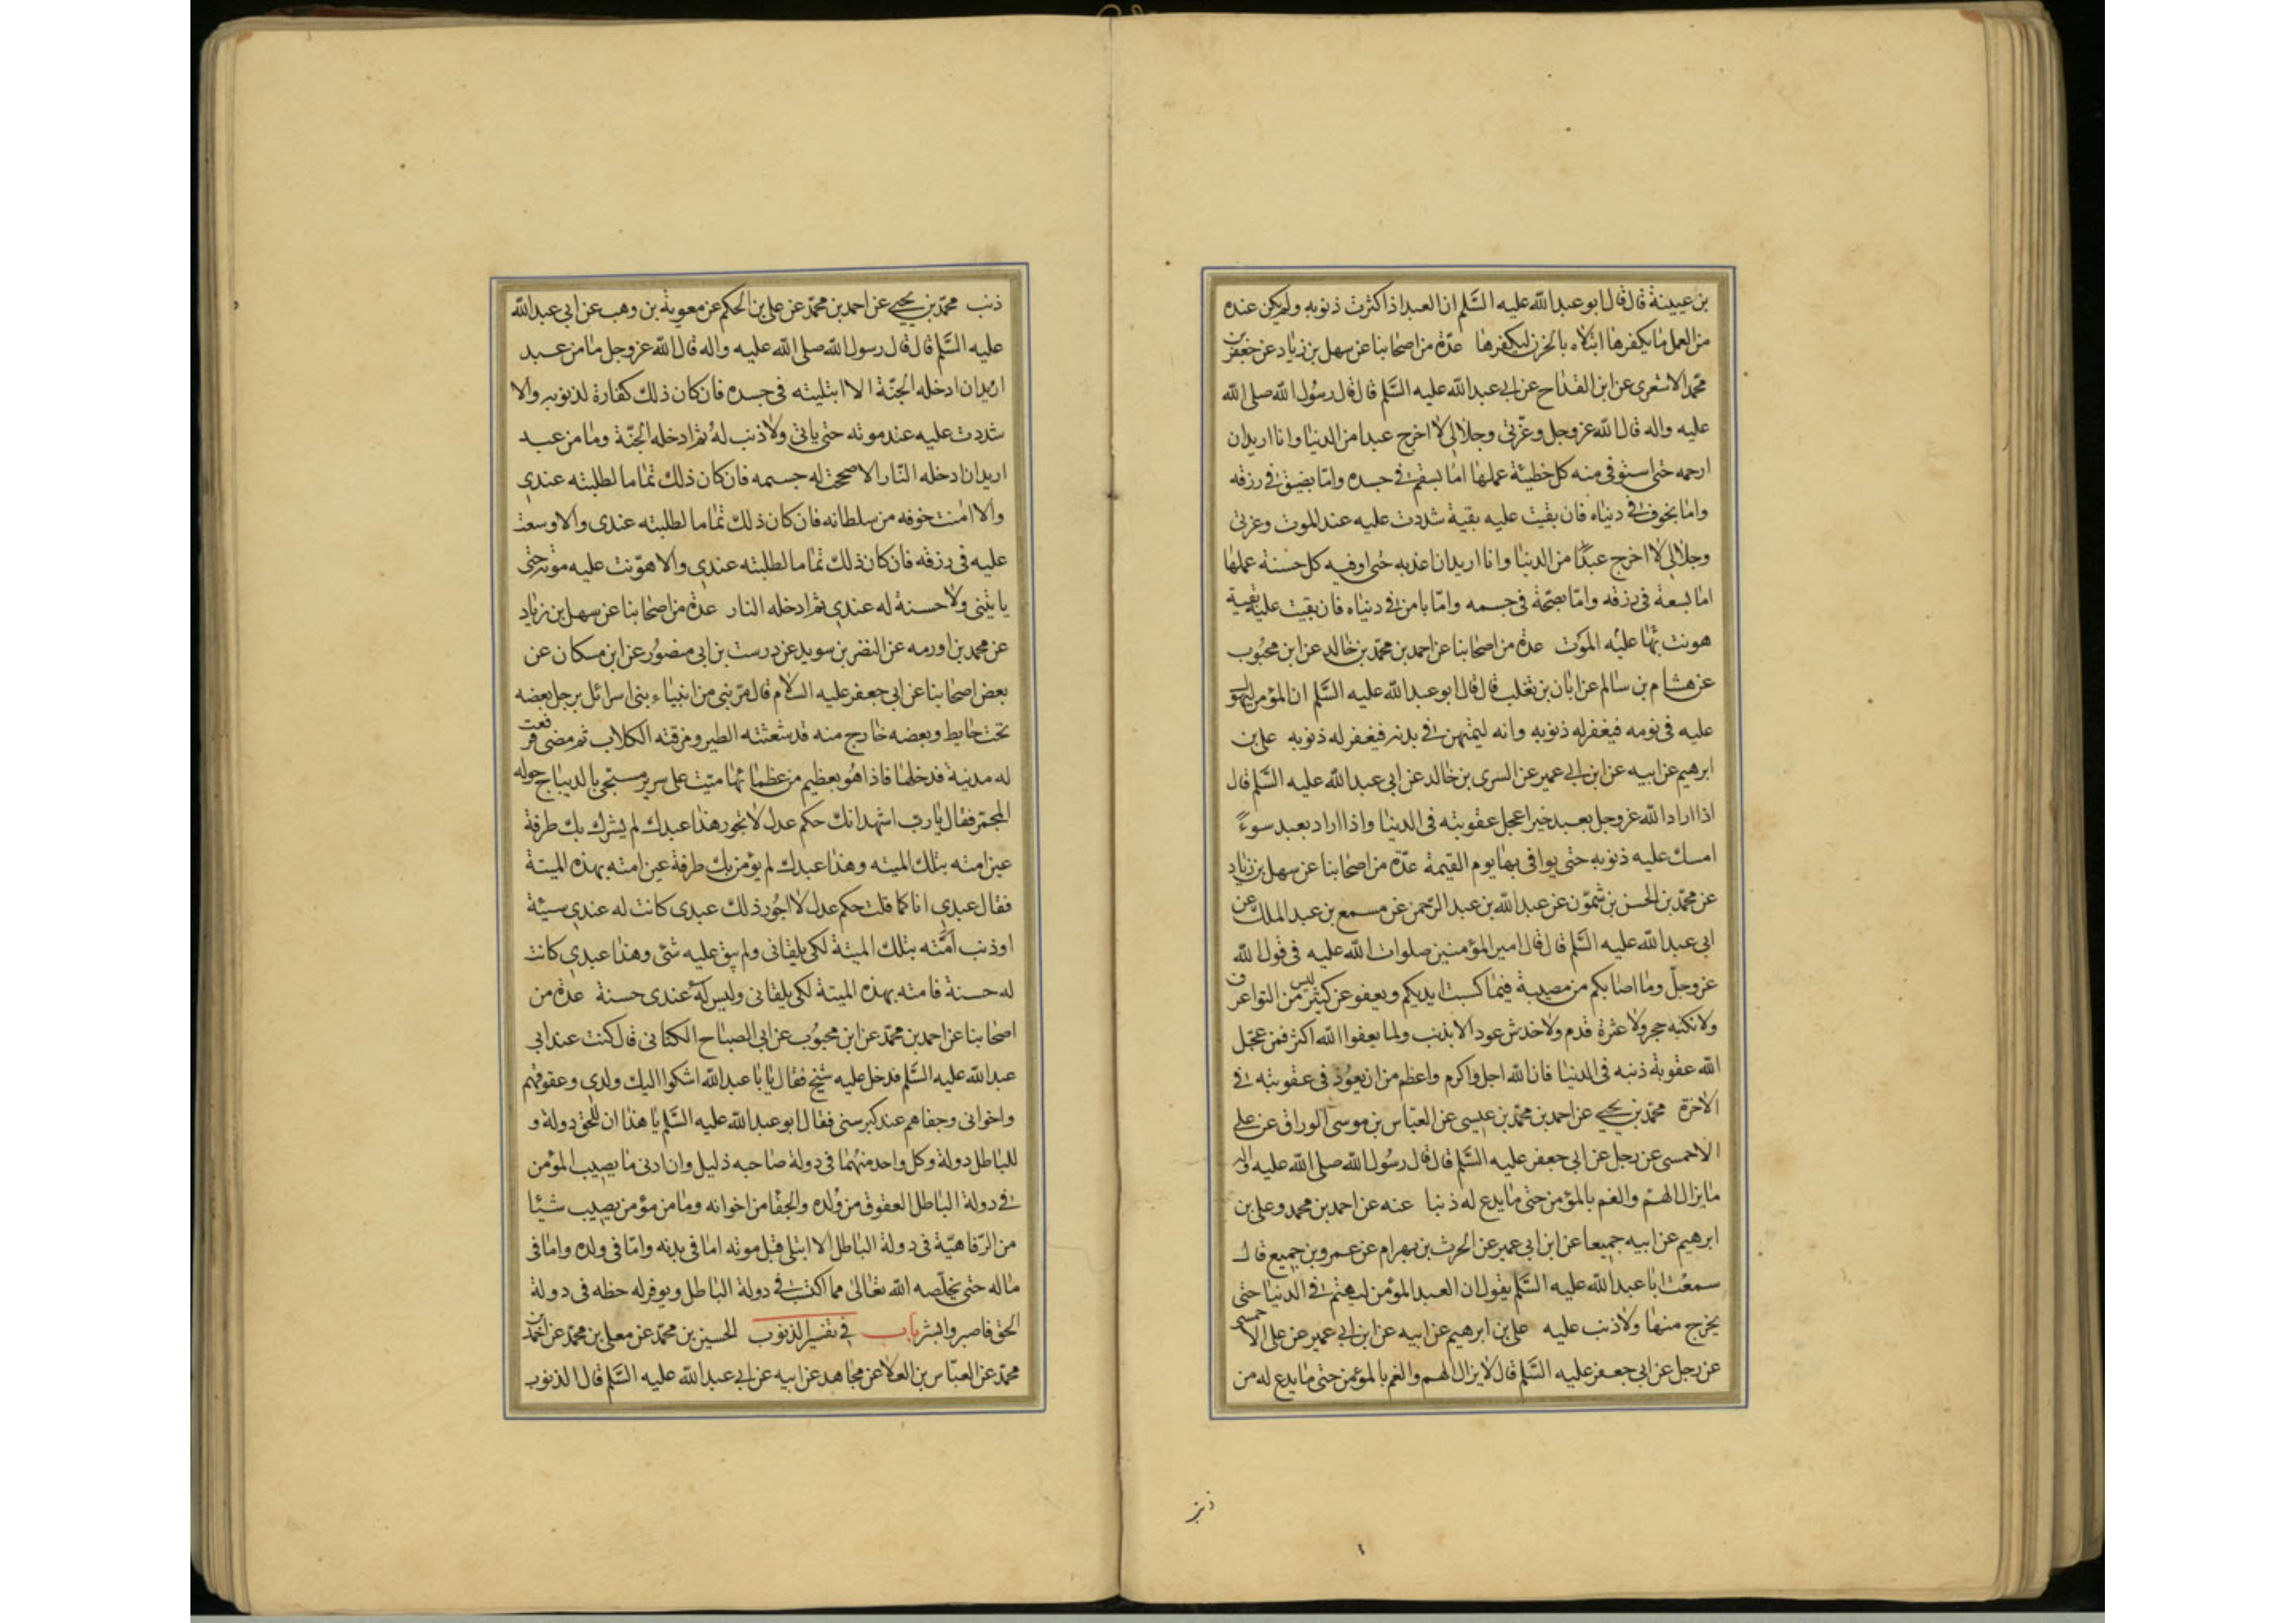 بن عيينة قال قال ابو عبد الله عليه السَّلم ان العبد اذا كثرت ذنوبه ولم يكن عنده
من العمل ما يكفرها ابتلاه بالحزن ليكفرها عدّة من اصحابنا عن سهل بن زياد عن جعفر بن
محمّد الاشعرى عن ابن القداح عن ابى عبد الله عليه السَّلم قال قال رسول الله صلى الله
عليه واله قال الله عز وجل وعزّتى وجلالى لا اخرج عبدا من الدنيا وانا اريد ان
ارحمه حتى استوفى منه كل خطيئة عملها اما بسقم فى جسده وامّا بضيق فى رزقه
واما بخوف فى دنياه فان بقيت عليه بقية شددت عليه عند الموت وعزتى
وجلالى لا اخرج عبدًا من الدنيا وانا اريد ان اعذبه حتى اوفيه كل حسنة عملها
اما بسعة فى رزقه وامّا بصحّة فى جسمه وامّا بامن فى دنياه فان بقيت عليه بقية
هونت بها عليه الموت عدة من اصحابنا عن احمد بن محمّد بن خالد عن ابن محبوب
عن هشام بن سالم عن ابان بن تغلب قال قال ابو عبد الله عليه السَّلم ان المؤمن ليهوّل
عليه فى نومه فيغفر له ذنوبه وانه ليمتهن فى بدنه فيغفر له ذنوبه على بن
ابرهيم عن ابيه عن ابن ابى عمير عن السرى بن خالد عن ابى عبد الله عليه السَّلم قال
اذا اراد الله عز وجل بعبد خيرا عجل عقوبته فى الدنيا واذا اراد بعبد سوءً
امسك عليه ذنوبه حتى يوافى بها يوم القيمة عدّة من اصحابنا عن سهل بن زياد
عن محمّد بن الحسن بن شمّون عن عبد الله بن عبد الرحمن عن مسمع بن عبد الملك عن
ابى عبد الله عليه السَّلم قال قال امير المؤمنين صلوات الله عليه فى قول الله
عز وجلّ وما اصابكم من مصيبة فبما كسبت ايديكم ويعفو عن كثير ليس من التواء عرق
ولا نكبة حجر ولا عثرة قدم ولا خدش عود الا بذنب ولما يعفوا الله اكثر فمن عجّل
الله عقوبة ذنبه فى الدنيا فان الله اجل واكرم واعظم من ان يعود فى عقوبته فى
الاخرة محمّد بن يحيى عن احمد بن محمّد بن عيسى عن العبّاس بن موسى الوراق عن على
الاحمسى عن رجل عن ابى جعفر عليه السَّلم قال قال رسول الله صلى الله عليه واله
ما يزال الهمّ والغم بالمؤمن حتى ما يدع له ذنبا عنه عن احمد بن محمد وعلى بن
ابرهيم عن ابيه جميعا عن ابن ابى عمير عن الحرث بن بهرام عن عمرو بن جميع قال
سمعت ابا عبد الله عليه السَّلم يقول ان العبد المؤمن ليهتم فى الدنيا حتى
يخرج منها ولا ذنب عليه على بن ابرهيم عن ابيه عن ابن ابى عمير عن على الاحمسى
عن رجل عن ابى جعفر عليه السَّلم قال لا يزال الهم والغم بالمؤمن حتى ما يدع له من
ذنب
ذنب محمّد بن يحيى عن احمد بن محمّد عن على بن الحكم عن معوية بن وهب عن ابى عبد الله
عليه السَّلم قال قال رسول الله صلى الله عليه واله قال الله عز وجل ما من عبد
اريد ان ادخله الجنّة الا ابتليته فى جسده فان كان ذلك كفارة لذنوبه والا
شددت عليه عند موته حتى ياتى ولا ذنب له ثم ادخله الجنّة وما من عبد
اريد ان ادخله النّار الا صححت له جسمه فان كان ذلك تماما لطلبته عندى
والا امنت خوفه من سلطانه فان كان ذلك تماما لطلبته عندى والا وسعت
عليه فى رزقه فان كان ذلك تماما لطلبته عندى والا هوّنت عليه موته حتى
ياتينى ولا حسنة له عندى ثم ادخله النار عدّة من اصحابنا عن سهل بن زياد
عن محمد بن اورمه عن النضر بن سويد عن درست بن ابى منصور عن ابن مسكان عن
بعض اصحابنا عن ابى جعفر عليه السلام قال مرّ نبى من انبياء بنى اسرائل برجل بعضه
تحت حايط وبعضه خارج منه قد شعثته الطير ومزقته الكلاب ثم مضى فرفعت
له مدينة فدخلها فاذا هو بعظيم من عظمائها ميّت على سرير مسجّى بالديباج حوله
المجمّر فقال يا رب اشهد انك حكم عدل لا تجور هذا عبدك لم يشرك بك طرفة
عين امته بتلك الميته وهذا عبدك لم يؤمن بك طرفة عين امته بهذه الميتة
فقال عبدى انا كما قلت حكم عدل لا اجور ذلك عبدى كانت له عندى سيئة
او ذنب امّته بتلك الميتة لكى يلقانى ولم يبق عليه شئ وهذا عبدى كانت
له حسنة فامته بهذه الميتة لكى يلقانى وليس له عندى حسنة عدة من
اصحابنا عن احمد بن محمّد عن ابن محبوب عن ابى الصباح الكنانى قال كنت عند ابى
عبد الله عليه السَّلم فدخل عليه شيخ فقال يا با عبد الله اشكوا اليك ولدى وعقوقهم
واخوانى وجفاهم عند كبر سنى فقال ابو عبد الله عليه السَّلم يا هذا ان للحق دولة و
للباطل دولة وكل واحد منهما فى دولة صاحبه ذليل وان ادنى ما يصيب المؤمن
فى دولة الباطل العقوق من ولده والجفا من اخوانه وما من مؤمن يصيب شيئا
من الرّفاهيّة فى دولة الباطل الا ابتلى قبل موته اما فى بدنه وامّا فى ولده واما فى
ماله حتى يخلّصه الله تعالى مما اكتسب فى دولة الباطل ويوفر له حظه فى دولة
الحق فاصبر وابشر باب فى تفسير الذنوب الحسين بن محمّد عن معلى بن محمّد عن احمد بن
محمّد عن العبّاس بن العلا عن مجاهد عن ابيه عن ابى عبد الله عليه السَّلم قال الذنوب